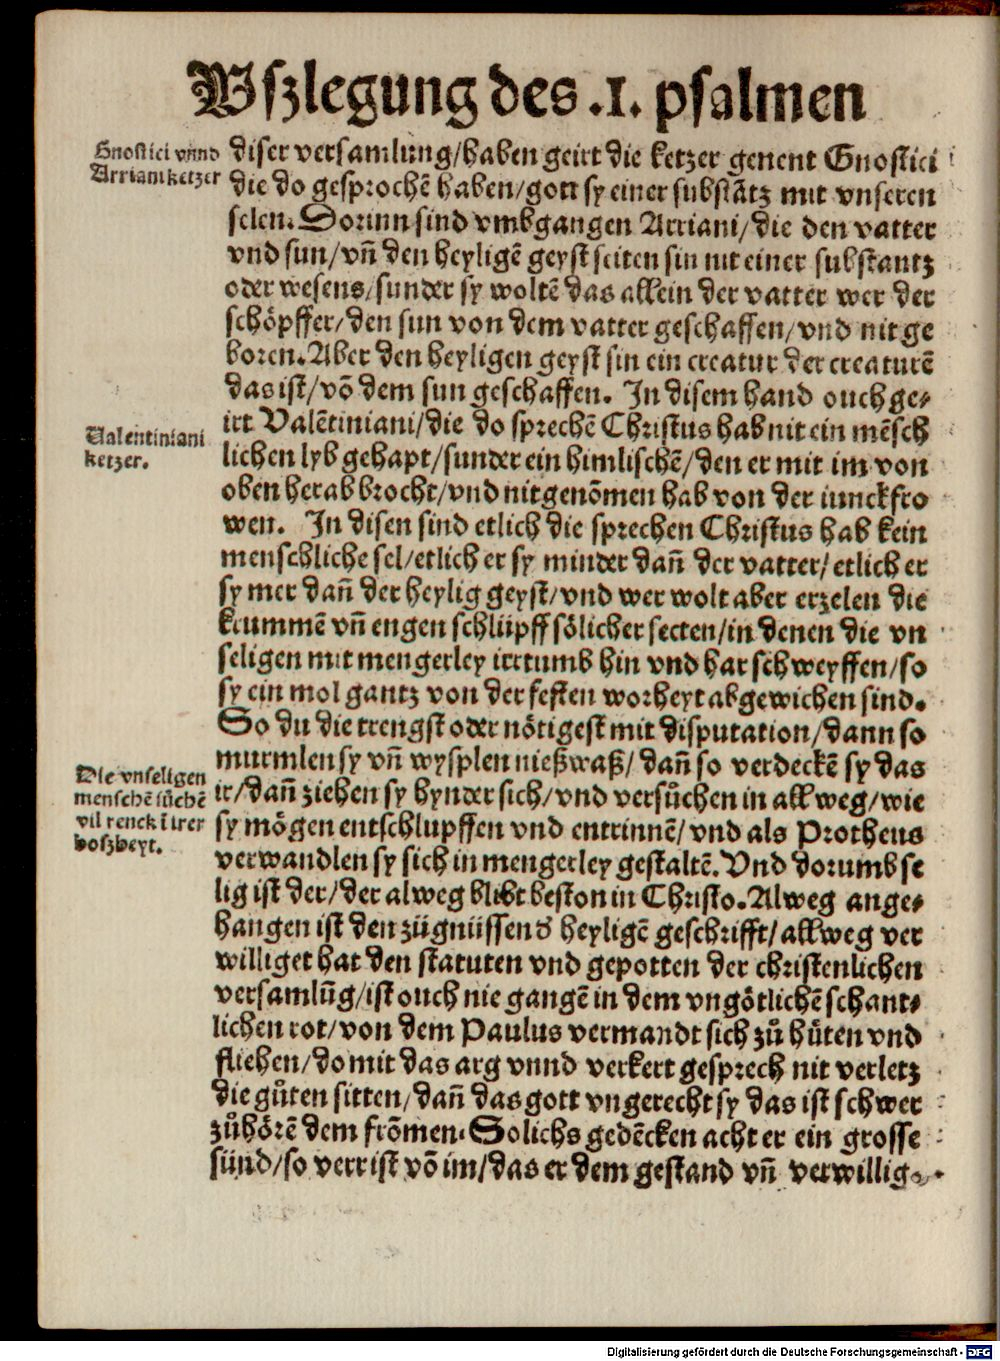 Vſzlegung des .1. pſalmen
Gnoſtici vnnd
Arriani ketzer
Ualentiniani
ketzer.
Die vnſeligen
menſchē ſuͤchē
vil renck ī irer
boſzheyt.
diſer verſamlung/haben geirt die ketzer genent Gnoſtici
die do geſprochē haben/gott ſy einer ſubſtātz mit vnſeren
ſelen. Dorinn ſind vmbgangen Arriani/die den vatter
vnd ſun/vn̄ den heyligē geyſt ſeiten ſin nit einer ſubſtantz
oder weſens/ſunder ſy woltē das allein der vatter wer der
ſchöpffer/den ſun von dem vatter geſchaffen/vnd nit ge
boren. Aber den heyligen geyſt ſin ein creatur der creaturē
das iſt/vō dem ſun geſchaffen. In diſem hand ouch ge⸗
irt Valētiniani/die do ſprechē Chriſtus hab nit ein mēſch
lichen lyb gehapt/ſunder ein himliſchē/den er mit im von
oben herab brocht/vnd nit genōmen hab von der iunckfro
wen. In diſen ſind etlich die ſprechen Chriſtus hab kein
menſchliche ſel/etlich er ſy minder dan̄ der vatter/etlich er
ſy mer dan̄ der heylig geyſt/vnd wer wolt aber erzelen die
krummē vn̄ engen ſchlüpff ſölicher ſecten/in denen die vn
ſeligen mit mengerley irrtumb hin vnd har ſchweyffen/ſo
ſy ein mol gantz von der feſten worheyt abgewichen ſind.
So du die trengſt oder nötigeſt mit diſputation/dann ſo
murmlen ſy vn̄ wyſplen nießwaß/dan̄ ſo verdeckē ſy das
ir/dan̄ ziehen ſy hynder ſich/vnd verſuͦchen in all weg/wie
ſy mögen entſchlupffen vnd entrinnē/vnd als Protheus
verwandlen ſy ſich in mengerley geſtaltē. Vnd dorumb ſe
lig iſt der/der alweg blibt beſton in Chriſto. Alweg ange⸗
hangen iſt den zügnüſſen d̕ heyligē geſchrifft/allweg ver
williget hat den ſtatuten vnd gepotten der chriſtenlichen
verſamlūg/iſt ouch nie gangē in dem vngötlichē ſchant⸗
lichen rot/von dem Paulus vermandt ſich zuͦ hüten vnd
fliehen/do mit das arg vnnd verkert geſprech nit verletz
die guͦten ſitten/dan̄ das gott vngerecht ſy das iſt ſchwer
zuͦhörē dem frōmen. Solichs gedēcken acht er ein groſſe
ſünd/ſo verr iſt vō im/das er dem geſtand vn̄ verwillig⸗
Digitalisierung gefördert durch die Deutsche Forschungsgemeinschaft - DFG